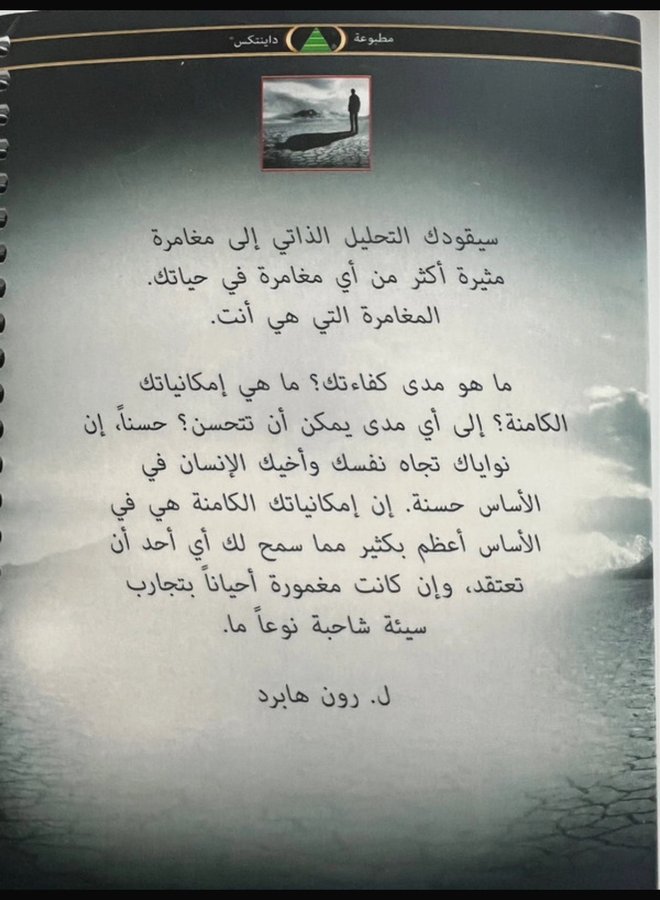 مطبوعة داينتكس
سيقودك التحليل الذاتي إلى مغامرة
مثيرة أكثر من أي مغامرة في حياتك.
المغامرة التي هي أنت.
ما هو مدى كفاءتك؟ ما هي إمكانياتك
الكامنة؟ إلى أي مدى يمكن أن تتحسن؟ حسناً، إن
نواياك تجاه نفسك وأخيك الإنسان في
الأساس حسنة. إن إمكانياتك الكامنة هي في
الأساس أعظم بكثير مما سمح لك أي أحد أن
تعتقد، وإن كانت مغمورة أحياناً بتجارب
سيئة شاحبة نوعاً ما.
ل. رون هابرد